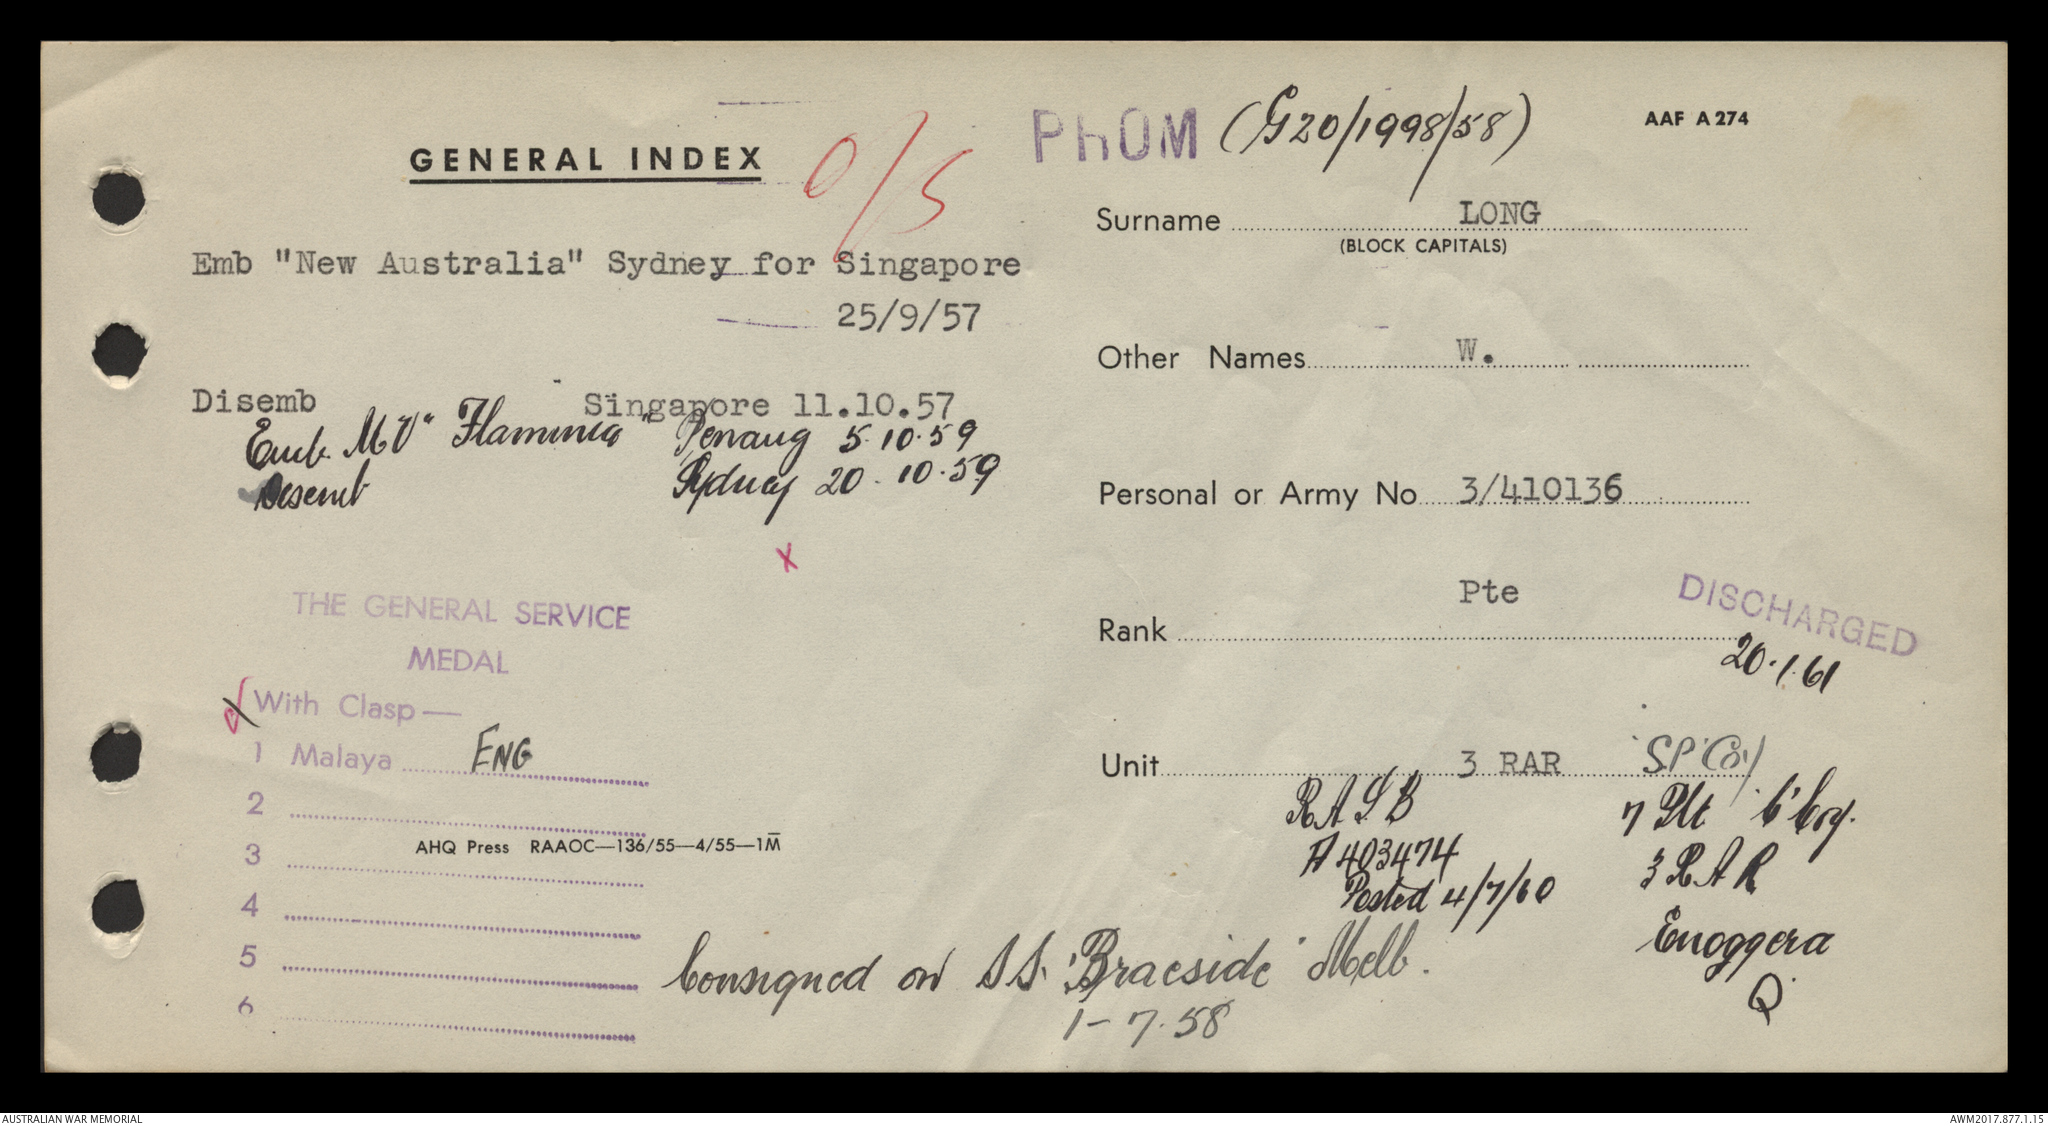 GENERAL INDEX
O/S
Emb "New Australia" Sydney for Singapore
25/9/57
Disemb Singapore 11.10.57
Emb. MV "Flaminia" Penang 5.10.59
Disemb Sydney 20.10.59
X
THE GENERAL SERVICE
MEDAL
With Clasp—
1 Malaya ENG
2
3
4
5
6
AHQ Press RAAOC—136/55—4/55—1M
PhOM (G20/1998/58) AAF A 274
Surname LONG
(BLOCK CAPITALS)
Other Names W.
Personal or Army No 3/410136
Rank Pte
DISCHARGED
20.1.61
Unit 3 RAR SP Coy
RASB
A 403474
Posted 4/7/60
7 Plt 'C' Coy.
3 RAR
Enoggera
Q
Consigned on SS. "Braeside" Melb.
1-7.58
AUSTRALIAN WAR MEMORIAL
AWM2017.877.1.15